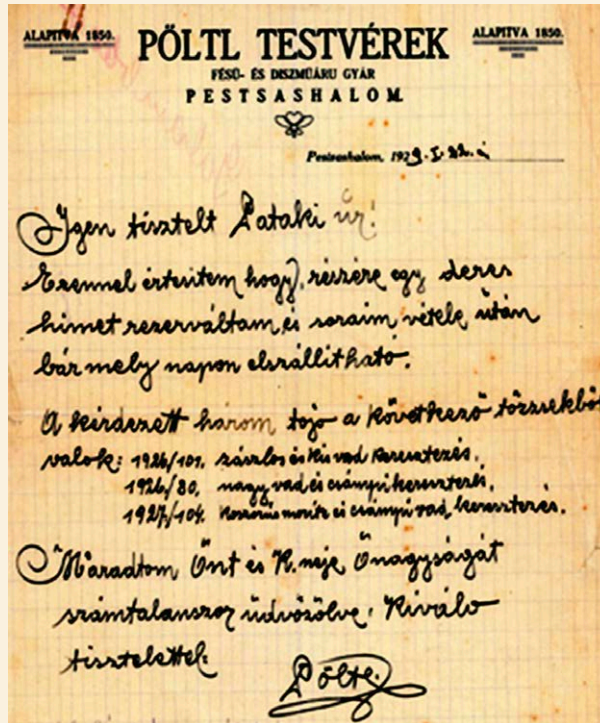 ALAPITVA 1850.
PÖLTL TESTVÉREK
ALAPITVA 1850.
FÉSŰ- ÉS DISZMŰÁRU GYÁR
PESTSASHALOM.
Pestsashalom, 1929. I. 22.
Igen tisztelt Pataki úr!
Ezennel értesitem hogy, részére egy deres
himet rezerváltam, és soraim vétele után
bár mely napon elszállitható.
A kérdezett három tojó a következő tözsekböl
valok: 1926/101. zászlos és kis vad keresztezés.
1926/80. nagy vad és csányú keresztezés.
1927/104. és csányú vad, keresztezés.
Maradtom Önt és K. neje Önagyságát
számtalanszor üdvözölve. Kiváló
tisztelettel:
Pöltl.